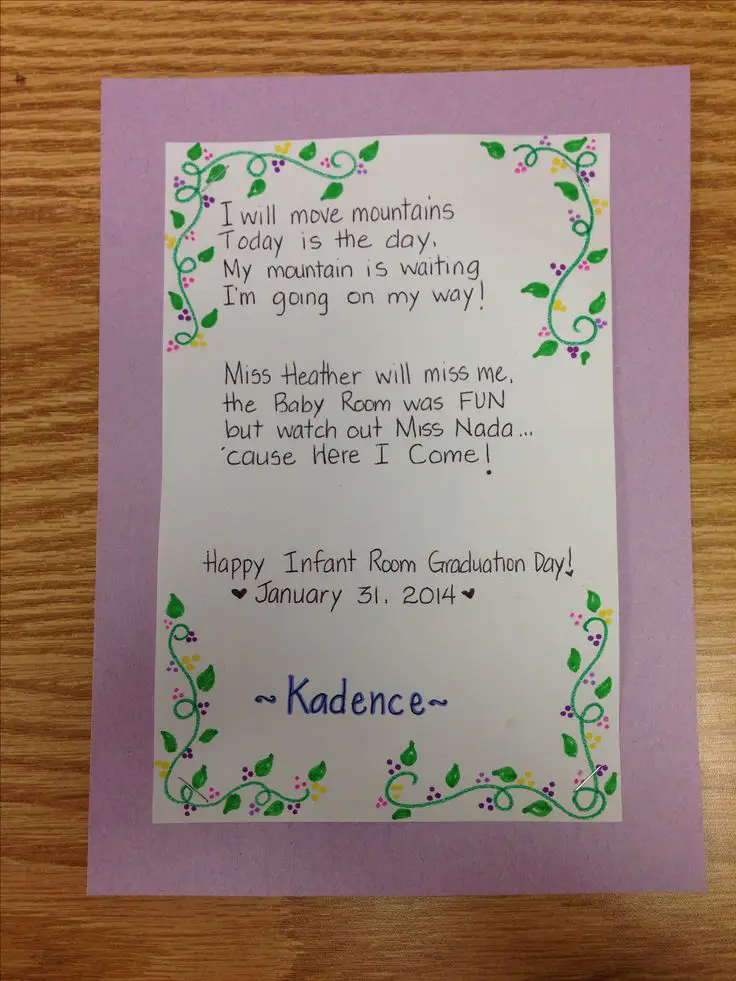 I will move mountains
Today is the day,
My mountain is waiting
I'm going on my way!
Miss Heather will miss me,
the Baby Room was FUN
but watch out Miss Nada...
'cause Here I Come!
Happy Infant Room Graduation Day!
♥ January 31, 2014 ♥
~Kadence~